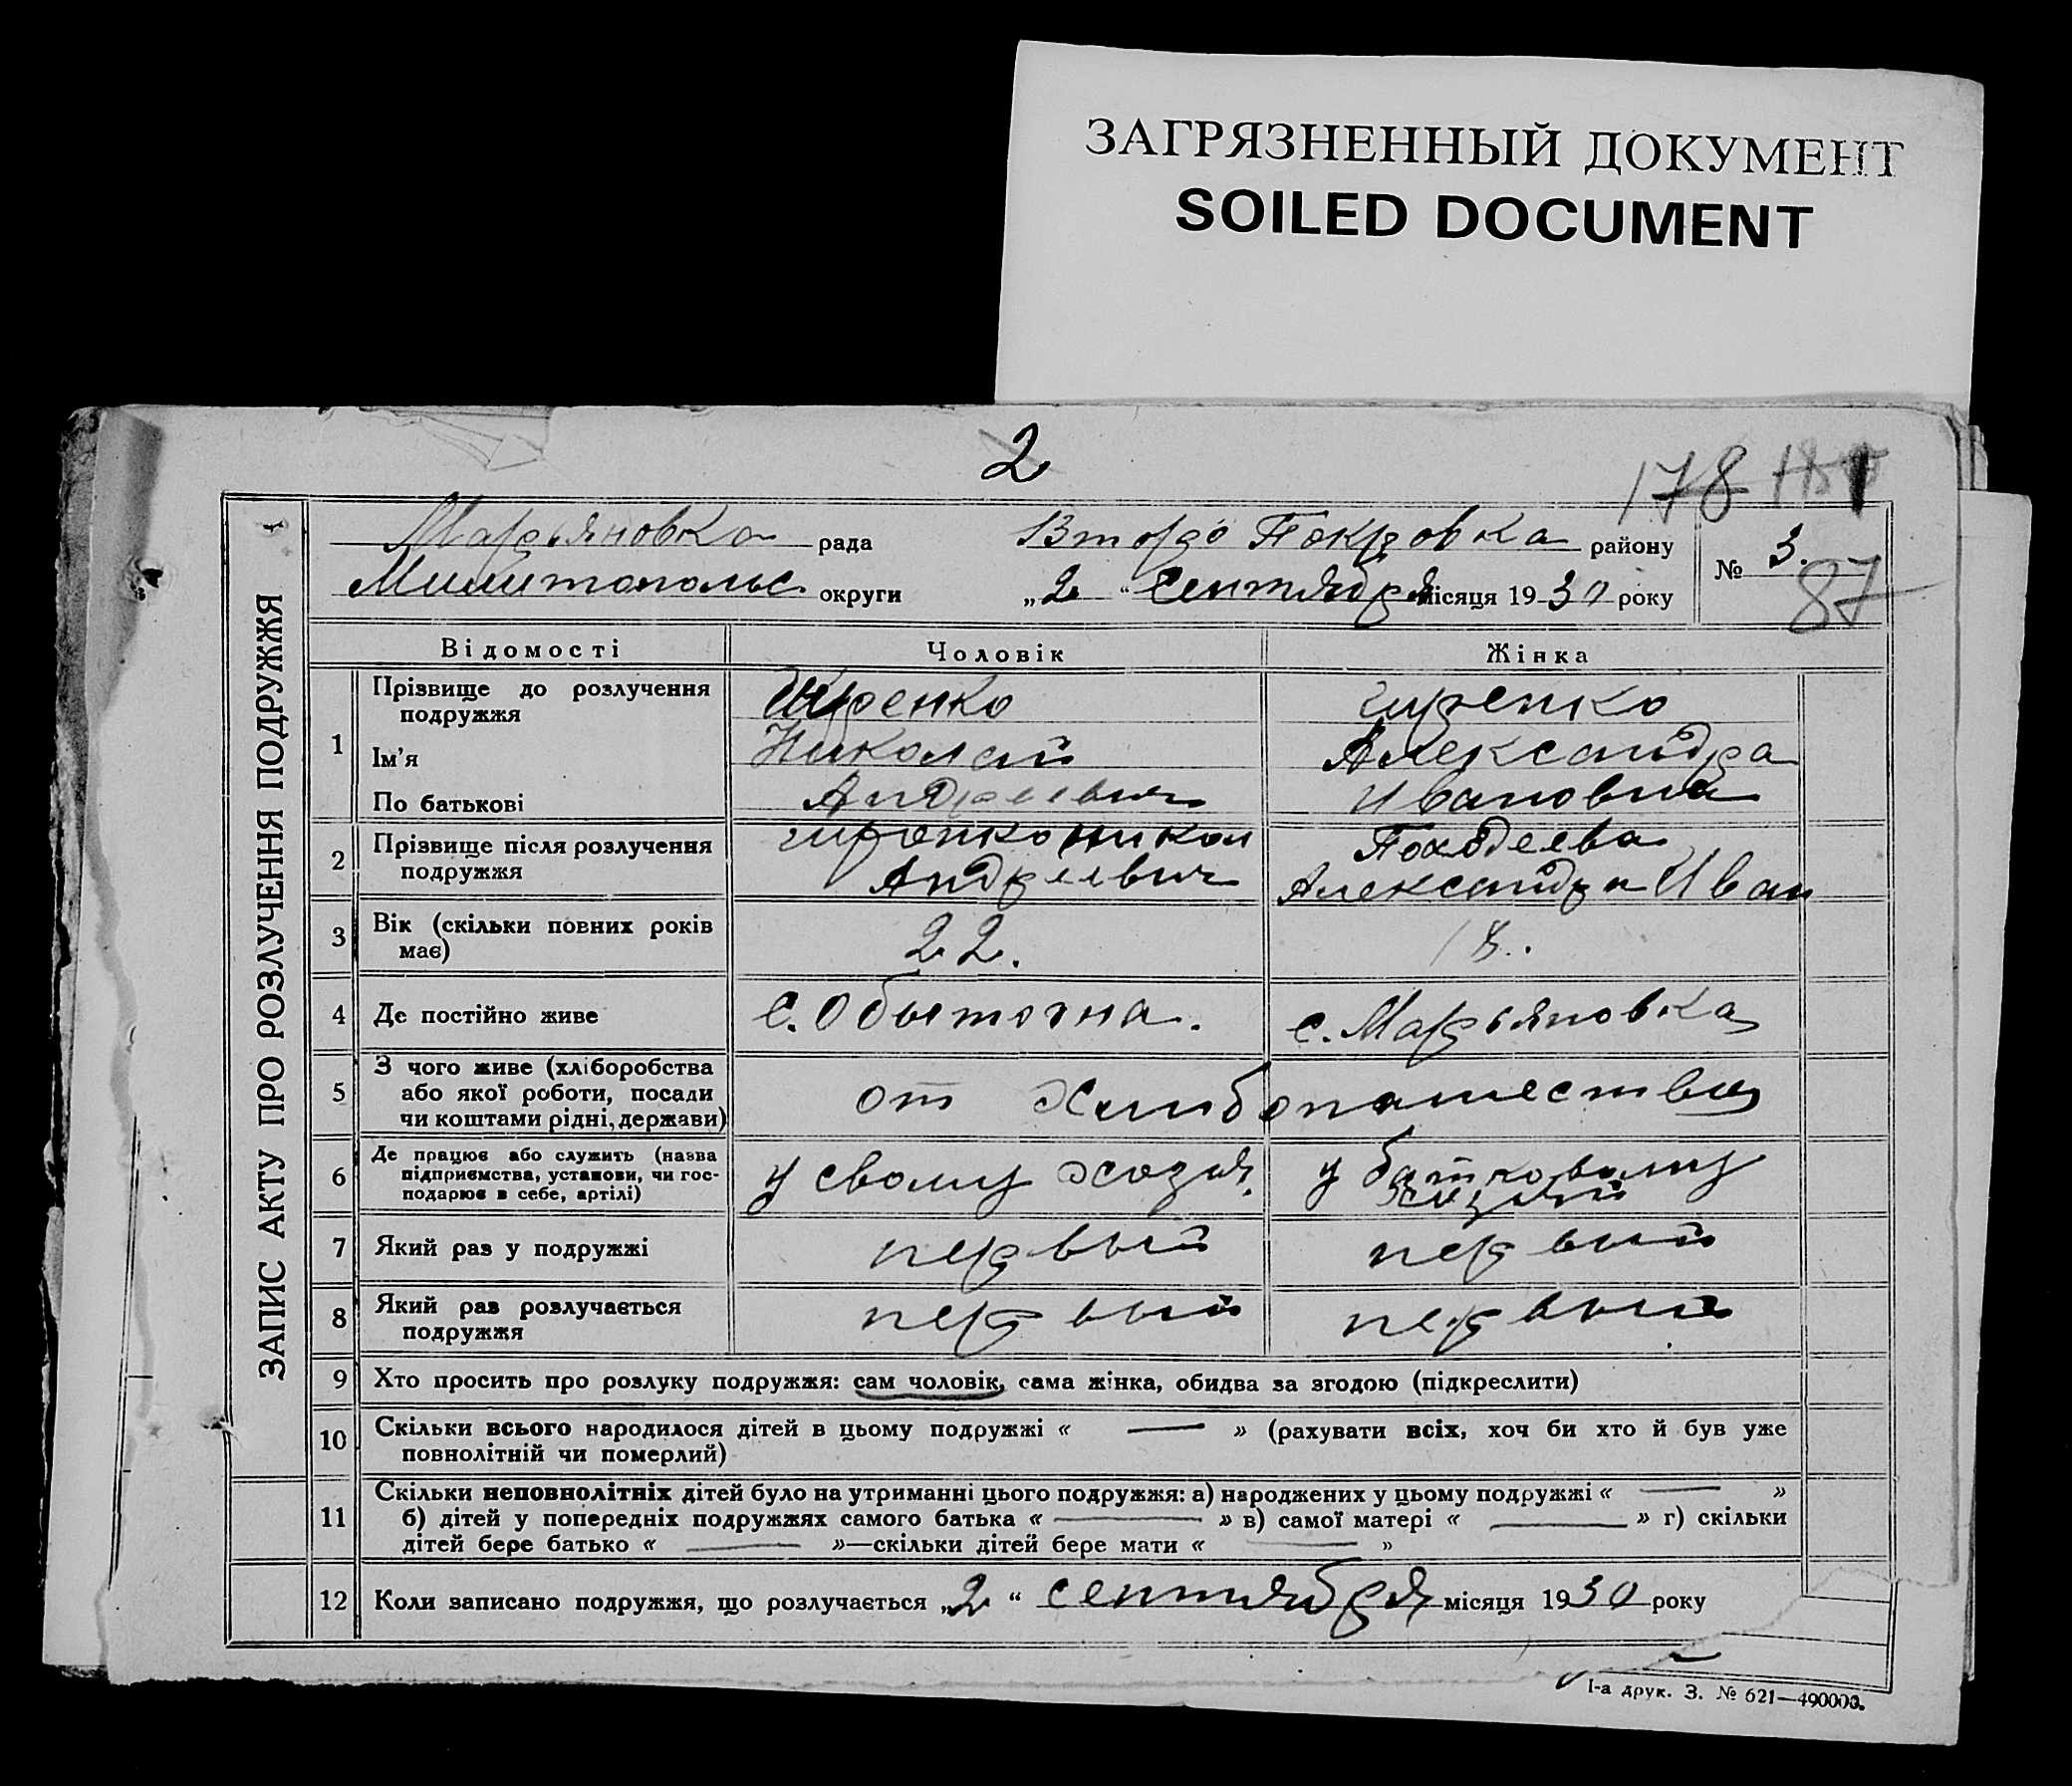 ЗАГРЯЗНЕННЫЙ ДОКУМЕНТ
SOILED DOCUMENT
2
178
ЗАПИС АКТУ ПРО РОЗЛУЧЕННЯ ПОДРУЖЖЯ
Марьяновка рада Второ Покровка району № 3.
Милитопольс округи „2“ сентября місяця 1930 року
87
Відомості Чоловік Жінка
1 Прізвище до розлучення подружжя Гиренко Гиренко
Ім'я Николай Александра
По батькові Андреевич Ивановна
2 Прізвище після розлучення Гиренко Никол
подружжя Андреевич Александра Иван
3 Вік (скільки повних років 22. 18.
має)
4 Де постійно живе с. Обыточна. с. Марьяновка
5 З чого живе (хліборобства
або якої роботи, посади от хлибопашества
чи коштами рідні, держави)
6 Де працює або служить (назва
підприємства, установи, чи гос- у свому хозяй. у батковому
подарює в себе, артілі)
7 Який раз у подружжі первый первый
8 Який раз розлучається первый первый
подружжя
9 Хто просить про розлуку подружжя: сам чоловік, сама жінка, обидва за згодою (підкреслити)
10 Скільки всього народилося дітей в цьому подружжі « — » (рахувати всіх, хоч би хто й був уже
повнолітній чи померлий)
11 Скільки неповнолітніх дітей було на утриманні цього подружжя: а) народжених у цьому подружжі « — »
б) дітей у попередніх подружжях самого батька « — » в) самої матері « — » г) скільки
дітей бере батько « — »—скільки дітей бере мати « — »
12 Коли записано подружжя, що розлучається „2“ сентября місяця 1930 року
І-а друк. З. № 621—490000.